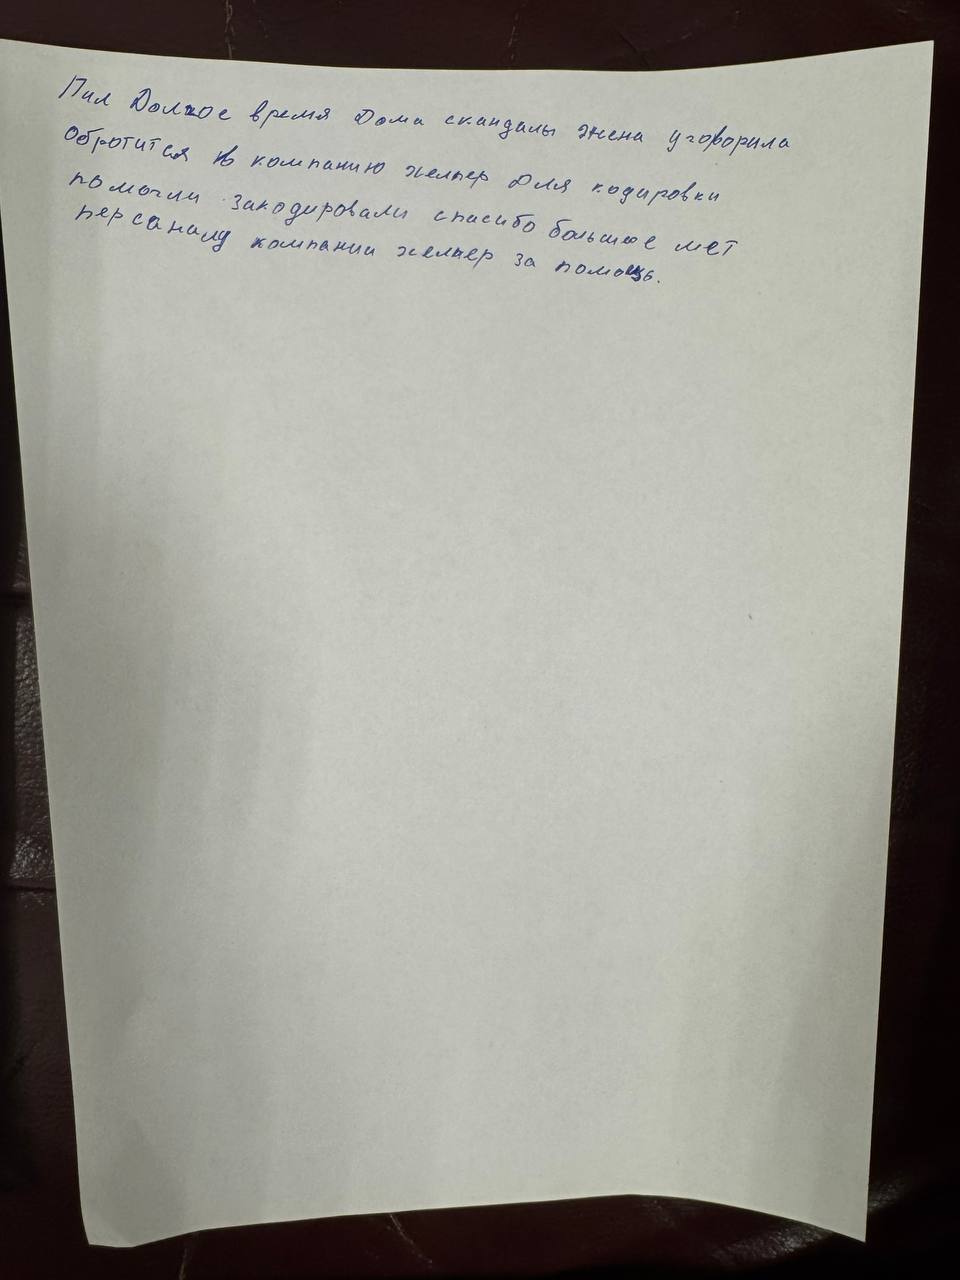 Пил Долгое время Дома скандалы жена уговорила
Обротится в компанию хелпер Для кодировки
помогли закодировали спасибо большое мет
персаналу компании хелпер за помощь.